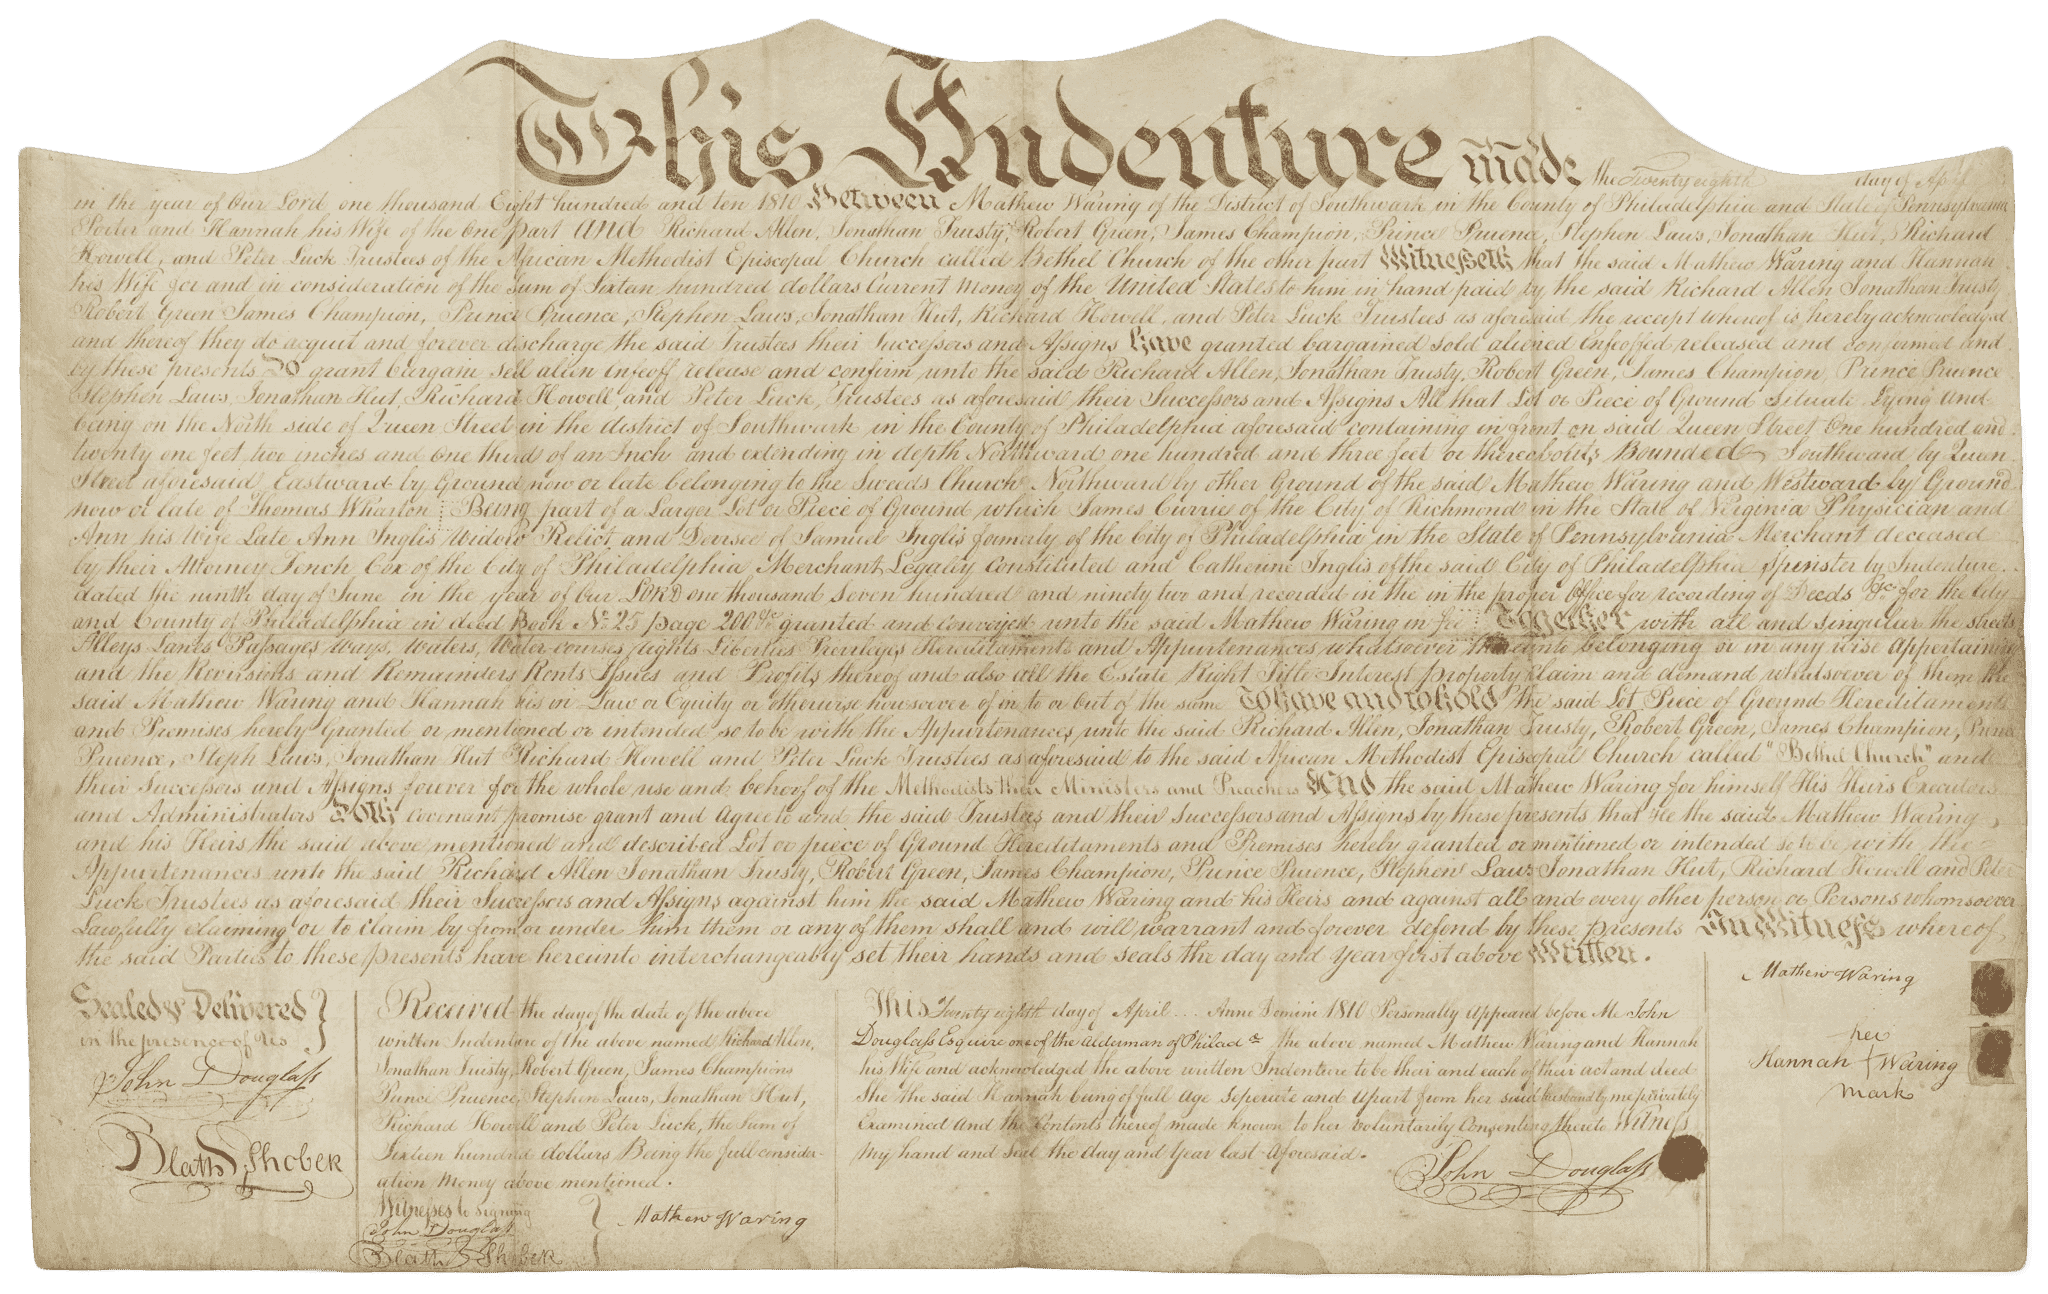 This Indenture made the Twenty eighth day of April
in the year of Our Lord one thousand Eight hundred and ten 1810 Between Mathew Waring of the District of Southwark in the County of Philadelphia and State of Pennsylvania
Porter and Hannah his Wife of the One part AND Richard Allen, Jonathan Trusty, Robert Green, James Champion, Prince Pruence, Stephen Laws, Jonathan Hut, Richard
Howell, and Peter Luck Trustees of the African Methodist Episcopal Church called Bethel Church of the other part Witnesseth that the said Mathew Waring and Hannah
his Wife for and in consideration of the Sum of Sixteen hundred dollars Current Money of the United States to him in hand paid by the said Richard Allen Jonathan Trusty
Robert Green James Champion, Prince Pruence, Stephen Laws, Jonathan Hut, Richard Howell, and Peter Luck Trustees as aforesaid the receipt whereof is hereby acknowledged
and thereof they do acquit and forever discharge the said Trustees their Successors and Assigns Have granted bargained sold aliened Enfeoffed released and confirmed and
by these presents Do grant bargain sell alien infeoff release and confirm unto the said Richard Allen, Jonathan Trusty, Robert Green, James Champion, Prince Pruence
Stephen Laws, Jonathan Hut, Richard Howell, and Peter Luck, Trustees as aforesaid, their Successors and Assigns All that Lot or Piece of Ground Situate Lying and
being on the North side of Queen Street in the district of Southwark in the County of Philadelphia aforesaid containing in front on said Queen Street One hundred and
twenty one feet two inches and one third of an Inch and extending in depth Northward one hundred and three feet or thereabouts Bounded Southward by Queen
Street aforesaid Eastward by Ground now or late belonging to the Sweeds Church Northward by other Ground of the said Mathew Waring and Westward by Ground
now or late of Thomas Wharton Being part of a Larger Lot or Piece of Ground which James Currie of the City of Richmond in the State of Virginia Physician and
Ann his Wife Late Ann Inglis Widow Relict and Devisee of Samuel Inglis formerly of the City of Philadelphia in the State of Pennsylvania Merchant deceased
by their Attorney Tench Cox of the City of Philadelphia Merchant Legally Constituted and Catherine Inglis of the said City of Philadelphia Spinster by Indenture
dated the ninth day of June in the year of our LORD one thousand Seven hundred and ninety two and recorded in the in the proper Office for recording of Deeds &c. for the City
and County of Philadelphia in deed Book No. 25 page 200 &c granted and conveyed unto the said Mathew Waring in fee Together with all and singular the streets
Alleys Lanes Passages ways, waters, Water courses rights Liberties Priviliges Hereditaments and Appurtenances whatsoever thereunto belonging or in any wise Appertaining
and the Reversions and Remainders Rents Issues and Profits thereof and also all the Estate Right Title Interest property claim and demand whatsoever of them the
said Mathew Waring and Hannah his in Law or Equity or otherwise howsoever of in to or out of the same To have and to hold the said Lot Piece of Ground Hereditaments
and Premises hereby Granted or mentioned or intended so to be with the Appurtenances unto the said Richard Allen, Jonathan Trusty, Robert Green, James Champion, Prince
Pruence, Steph Laws, Jonathan Hut Richard Howell and Peter Luck Trustees as aforesaid to the said African Methodist Episcopal Church called "Bethel Church" and
their Successors and Assigns forever for the whole use and behoof of the Methodists their Ministers and Preachers And the said Mathew Waring for himself His Heirs Executors
and Administrators Doth Covenant promise grant and Agree to and the said Trustees and their Successors and Assigns by these presents that He the said Mathew Waring
and his Heirs the said above mentioned and described Lot or piece of Ground Hereditaments and Premises hereby granted or mentioned or intended so to be with the
Appurtenances unto the said Richard Allen Jonathan Trusty, Robert Green, James Champion, Prince Pruence, Stephen Laws Jonathan Hut, Richard Howell and Peter
Luck Trustees as aforesaid their Successors and Assigns against him the said Mathew Waring and his Heirs and against all and every other person or Persons whomsoever
Lawfully claiming or to claim by from or under him them or any of them shall and will warrant and forever defend by these presents In Witness whereof
the said Parties to these presents have hereunto interchangeably set their hands and seals the day and year first above Written.
Sealed & Delivered
in the presence of Us
John Douglass
Received the day of the date of the above
written Indenture of the above named Richard Allen,
Jonathan Trusty, Robert Green, James Champions
Prince Pruence, Stephen Laws, Jonathan Hut,
Richard Howell and Peter Luck, the Sum of
Sixteen hundred dollars Being the full consider-
ation Money above mentioned.
Witnesses to signing
John Douglass
Mathew Waring
This Twenty eighth day of April ... Anno Domini 1810 Personally Appeared before Me John
Douglass Esquire one of the alderman of Philada. the above named Mathew Waring and Hannah
his Wife and acknowledged the above written Indenture to be their and each of their act and deed
She the said Hannah being of full Age Seperate and Apart from her said husband by me privately
Examined and the Contents thereof made known to her voluntarily Consenting thereto Witness
My hand and Seal the day and Year last Aforesaid.
John Douglass
Mathew Waring
her
Hannah + Waring
mark